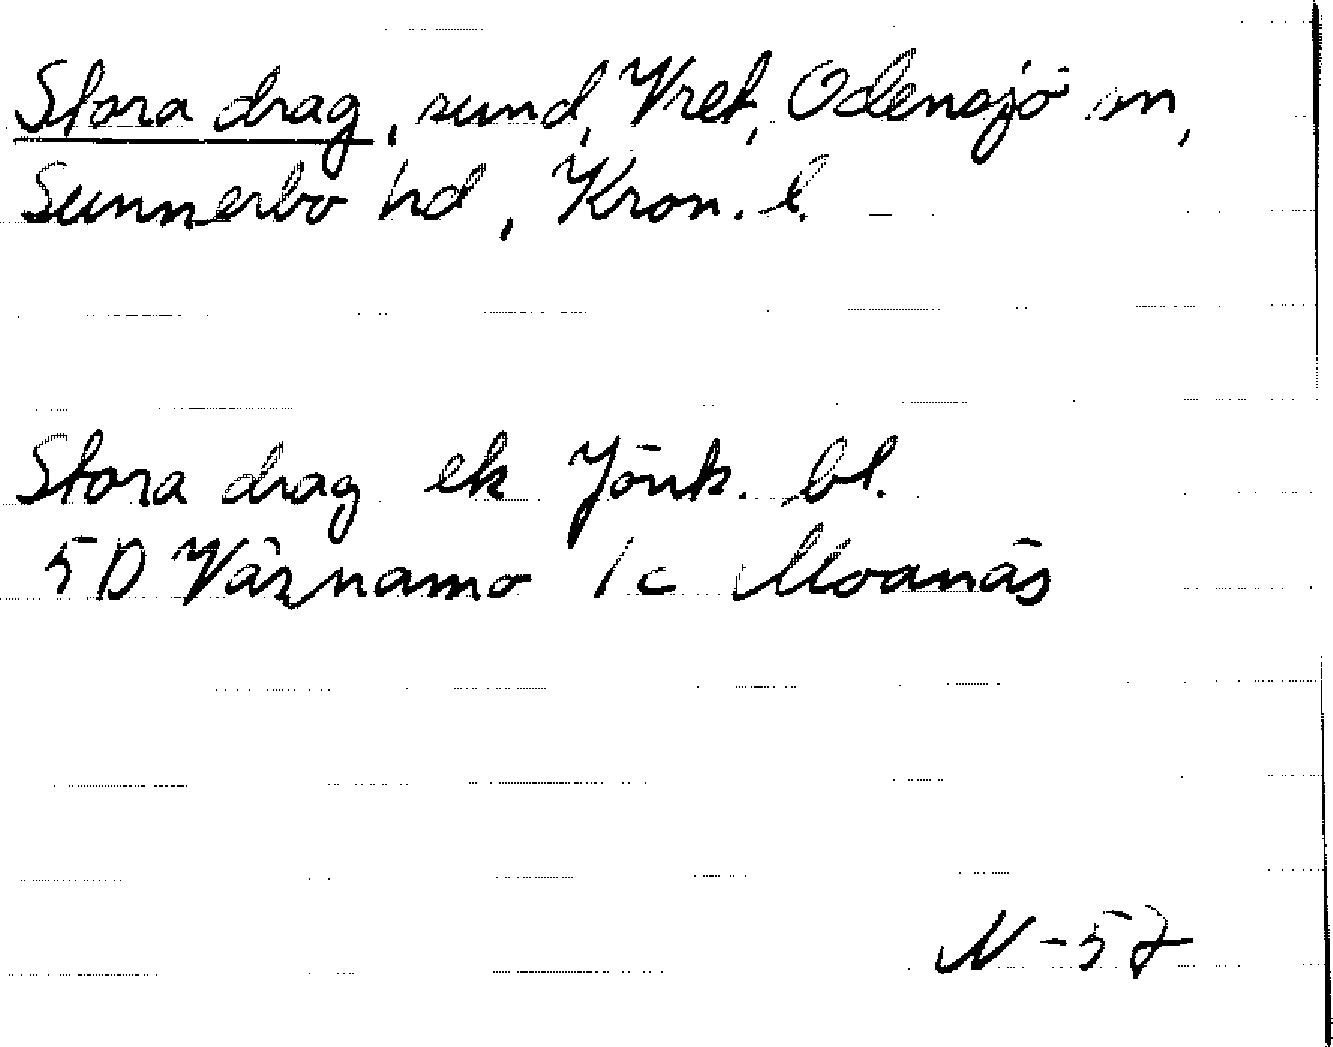 Stora drag, sund, Vret, Odensjö sn,
Sunnerbo hd, Kron. l.
Stora drag ek Jönk. bl.
5D Värnamo 1c Moanäs
N-57